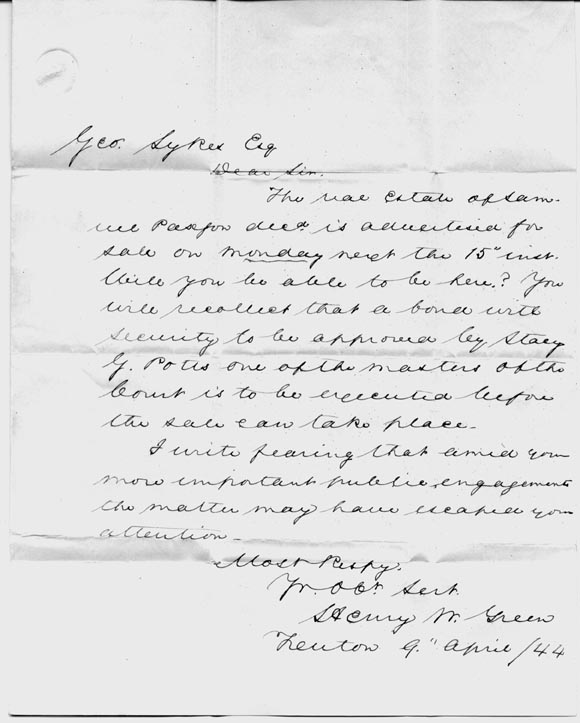 Geo. Sykes Esq
Dear Sir.
The real Estate of Sam-
uel Paxson decd. is advertised for
sale on Monday next the 15" inst.
Will you be able to be here.? You
will recollect that a bond with
security to be approved by Stacy
G. Potts one of the masters of the
Court is to be executed before
the sale can take place.
I write fearing that amid your
more important public engagements
the matter may have escaped your
attention.
Most Respy.
Yr. Obt. Servt.
Henry W. Green
Trenton 9." April /44